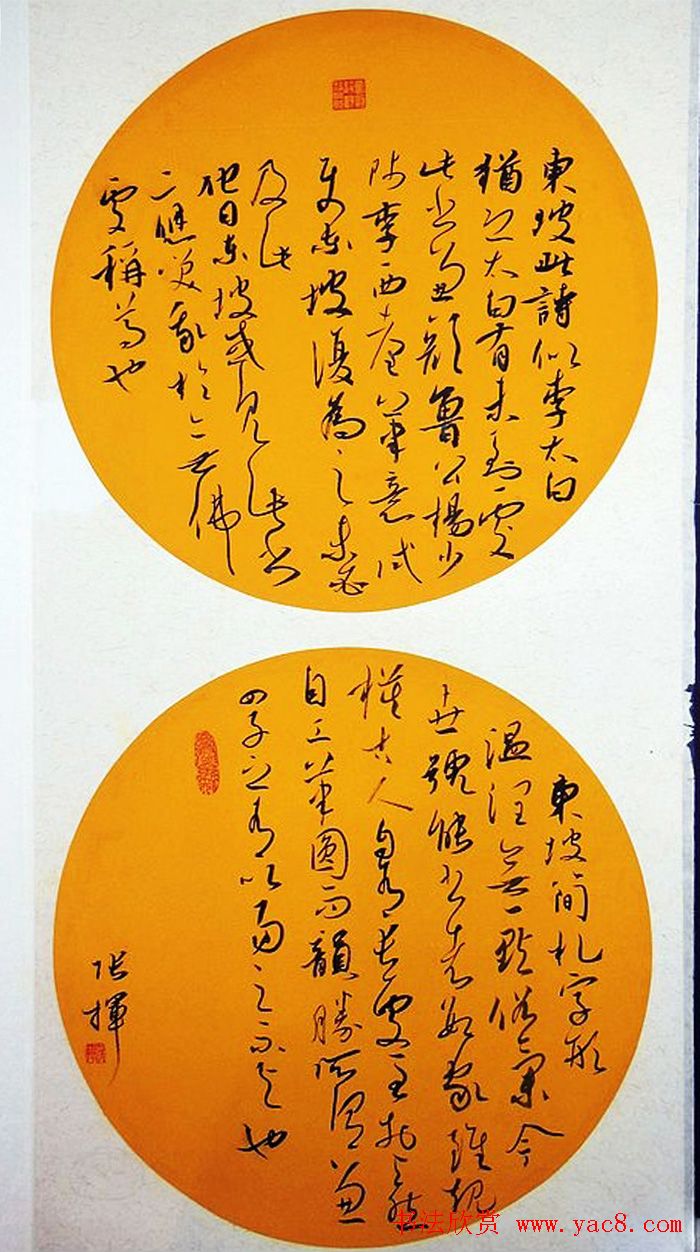 東坡此詩似李太白
猶恐太白有未到處
此書兼顏魯公楊少
師李西臺筆意試
使東坡復為之未必
及此
他日東坡或見此書
應笑我於無佛
處稱尊也
東坡簡札字形
溫潤無一點俗氣今
世號能書者數家雖規
模古人自有長處至於天然
自工筆圓而韻勝所謂兼
四子之有以易之不與也
張揮
书法欣赏 www.yac8.com